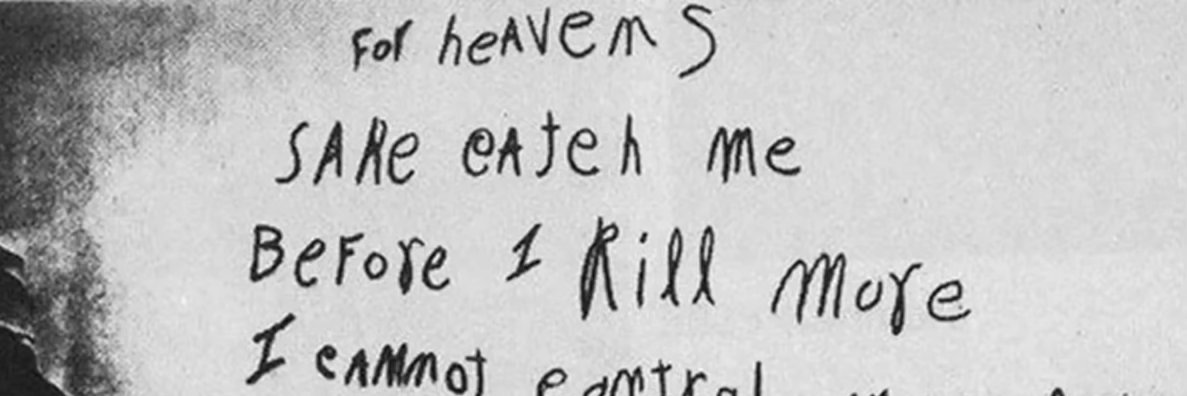 For heAvens
SAKe cAtch me
BeFore I Kill more
I cAnnot control